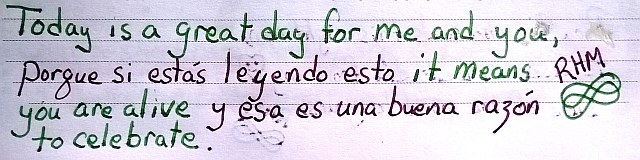 Today is a great day for me and you,
porque si estás leyendo esto it means RHM
you are alive y esa es una buena razón
to celebrate.